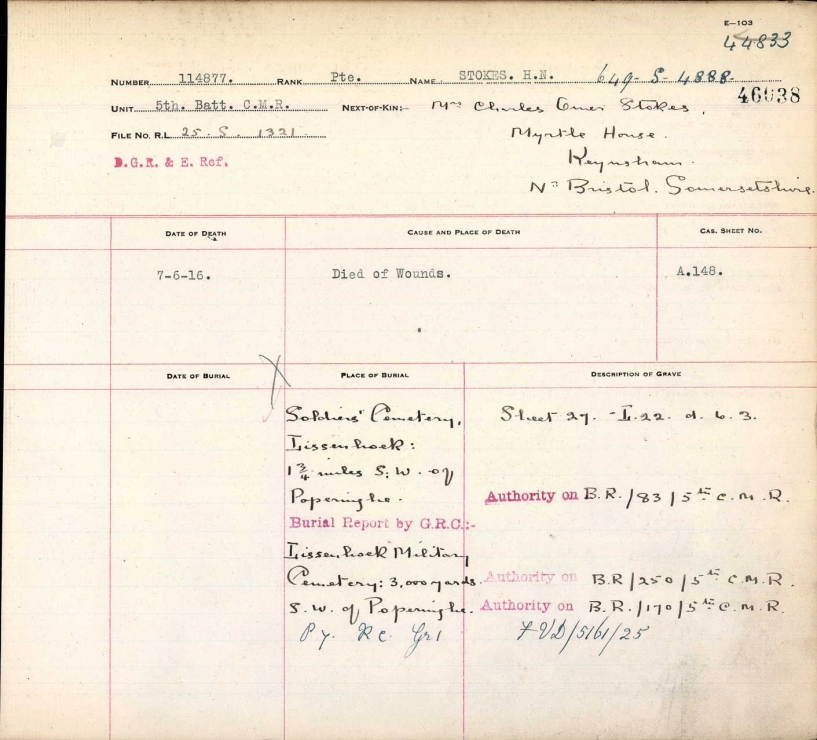 E—103
44833
NUMBER 114877. RANK Pte. NAME STOKES. H.N. 649-S-4888-
46038
UNIT 5th. Batt. C.M.R. NEXT-OF-KIN:- Mrs Charles Omer Stokes,
FILE NO. R.L. 25 S. 1321 Myrtle House.
D.G.R. & E. Ref. Keynsham.
Nr Bristol. Somersetshire.
DATE OF DEATH CAUSE AND PLACE OF DEATH CAS. SHEET NO.
7-6-16. Died of Wounds. A.148.
DATE OF BURIAL PLACE OF BURIAL DESCRIPTION OF GRAVE
Soldiers' Cemetery, Sheet 27. -L.22. d. 6. 3.
Lissenhoek:
1 3/4 miles S.W. of
Poperinghe. Authority on B.R./83/5th C.M.R.
Burial Report by G.R.C.:-
Lissenhoek Military
Cemetery: 3,000 yards. Authority on B.R/250/5th C.M.R.
S.W. of Poperinghe. Authority on B.R./170/5th C.M.R.
VD/5161/25